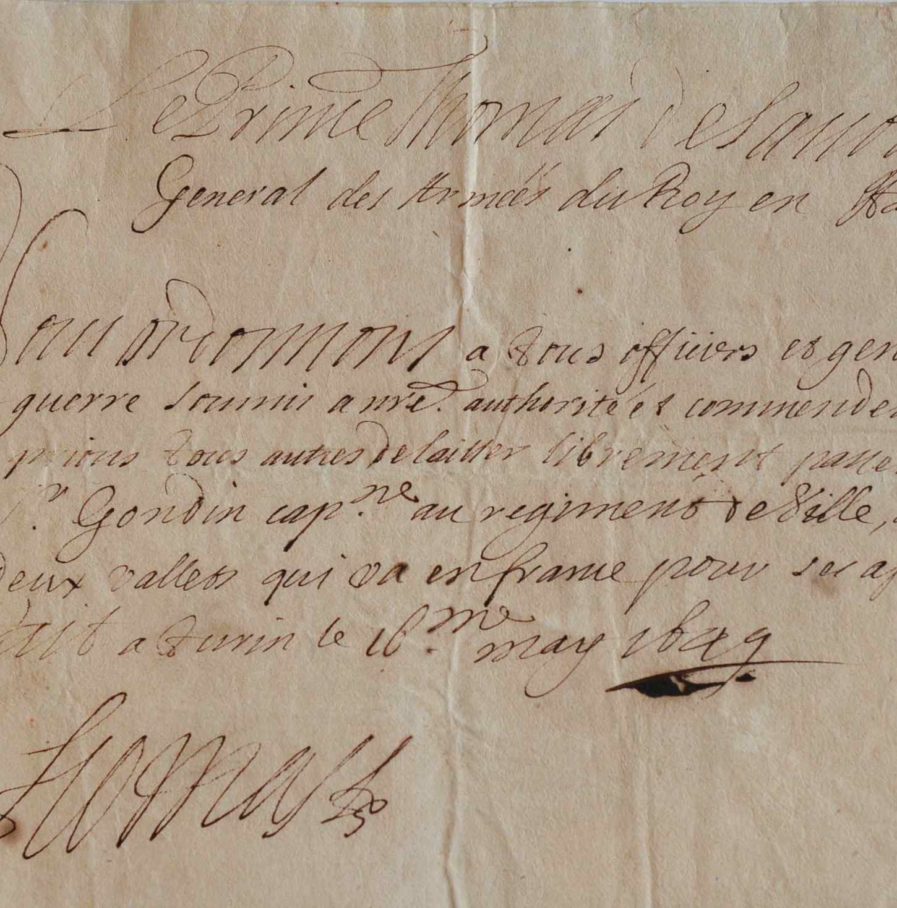 Le Prince Thomas de Sauo
General des Armées du Roy en Ita
Nous ordonnons a tous officiers et gen
guerre soumis a nre. authorité et commendem
prions tous autres de laisser librement passe
Sr. Gondin capne. au regiment de Ville,
deux vallets qui va en france pour ses af
fait a Turin le 16.me may 1649
Thomas